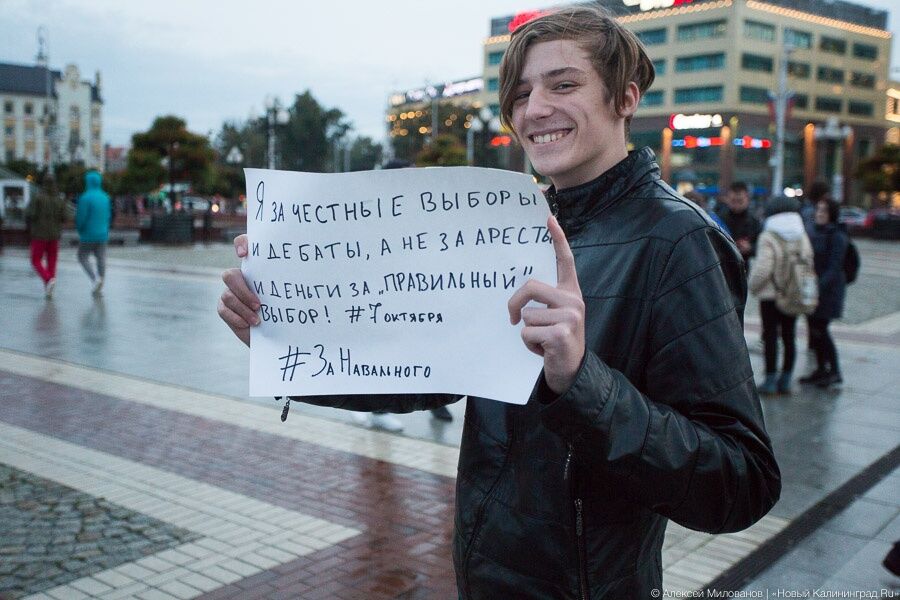 Я ЗА ЧЕСТНЫЕ ВЫБОРЫ
И ДЕБАТЫ, А НЕ ЗА АРЕСТЫ
И ДЕНЬГИ ЗА „ПРАВИЛЬНЫЙ"
ВЫБОР! #7 ОКТЯБРЯ
#ЗА НАВАЛЬНОГО
© Алексей Милованов | «Новый Калининград.Ru»